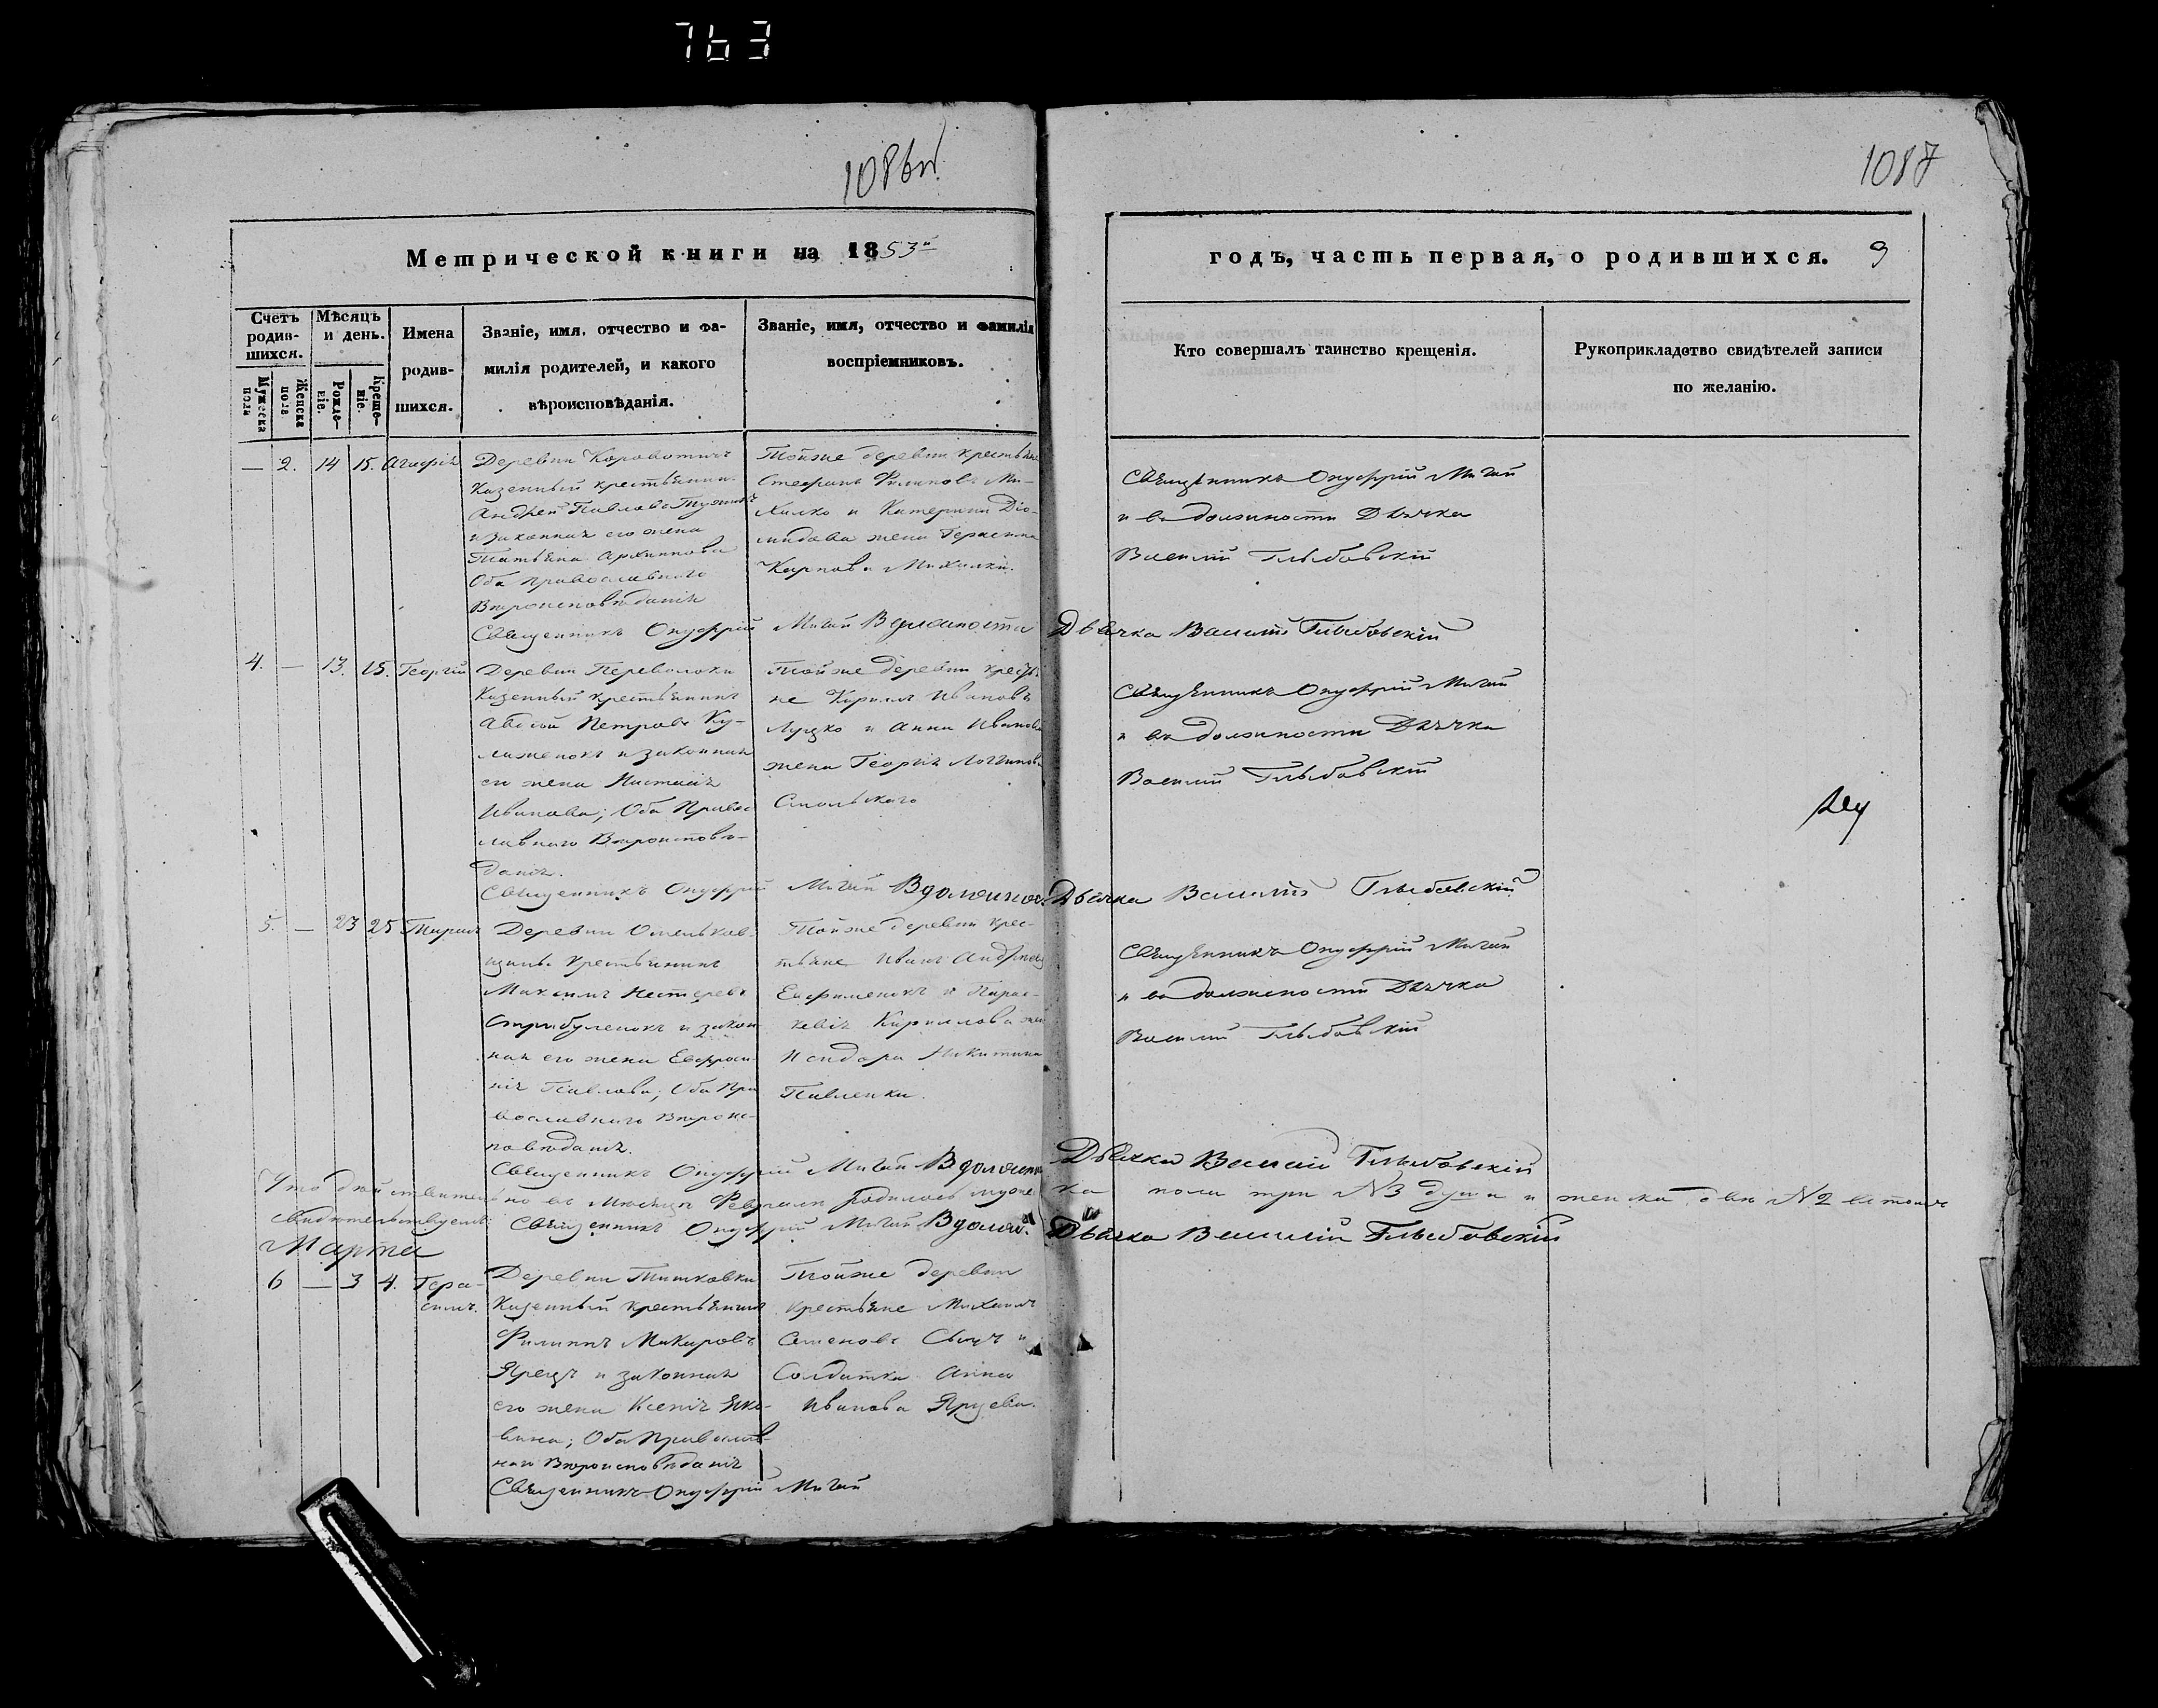 763
1086
1087
Метрической книги на 1853й
годъ, часть первая, о родившихся. 9
Счетъ родив-шихся.
Мѣсяцъ и день.
Мужеска пола
Женска пола
Рожде-ніе.
Креще-ніе.
Имена родив-шихся.
Званіе, имя, отчество и фа-
милія родителей, и какого
вѣроисповѣданія.
Званіе, имя, отчество и фамилія
воспріемниковъ.
Кто совершалъ таинство крещенія.
Рукоприкладство свидѣтелей записи
по желанію.
— 2. 14 15. Агафія
Деревни
Казенный крестьянинъ
Андрей Павловъ
и законная его жена
Татьяна Архипова
Оба православнаго
Вѣроисповѣданія
Тойже деревни крестьяне
Стефанъ Филиповъ Ми-
халко и Катерина Діо-
мидова жена Герасима
Карпова Михалки.
Священникъ Онуфрій Мигай
и въ должности Дьячка
Василій Глыбовскій
Священникъ Онуфрій Мигай В должности Дьячка Василій Глыбовскій
4. — 13. 15. Георгій
Деревни Переволоки
Казенный крестьянинъ
Петровъ Ку-
лаженокъ и законная
его жена Настасія
Иванова; Оба Правос
лавнаго Вѣроисповѣ-
данія.
Тойже деревни кресть
не Кирилъ Ивановъ
Луцко и Анна Иванова
жена Георгія Логвинова
Смольскаго
Священникъ Онуфрій Мигай
и въ должности Дьячка
Василій Глыбовскій
Священникъ Онуфрій Мигай В должнос. Дьячка Василій Глыбовскій
5. — 23 25
Деревни Омельков-
щины Крестьянинъ
Максимъ Нестеровъ
Стрибуленокъ и закон
ная его жена Евфроси-
нія Павлова; Оба Пра
вославнаго Вѣроис-
повѣданія.
Тойже деревни крес-
тьяне Иванъ Андреевъ
Евфименокъ и Парас-
кевія Кирилова жена
Исидора Никитина
Павленки.
Священникъ Онуфрій Мигай
и въ должности Дьячка
Василій Глыбовскій
Священникъ Онуфрій Мигай В должнос Дьячка Василій Глыбовскій
Что дѣйствительно въ Мѣсяцѣ Февралѣ родилось мужес ка пола три №3 душа и женска двѣ №2 въ томъ
свидѣтельствуемъ: Священникъ Онуфрій Мигай В должн. Дьячка Василій Глыбовскій
Марта
6 — 3 4. Гера-
симъ.
Деревни Титковки
Казенный крестьянинъ
Филипъ Макаровъ
Ярецъ и законная
его жена Ксенія Яко-
влева; Оба Православ-
наго Вѣроисповѣданія
Тойже деревни
крестьяне Михаилъ
Семеновъ Сыцъ и
Солдатка Анна
Иванова Ярцева.
Священникъ Онуфрій Мигай